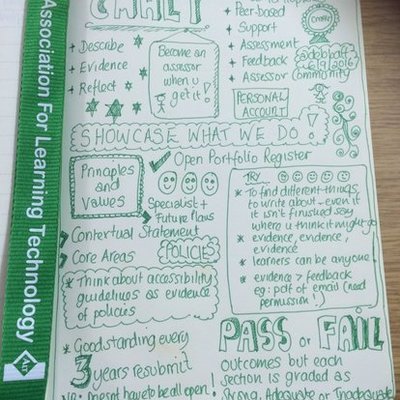 Association For Learning Technology
ALT
CMALT
+ Describe
+ Evidence
+ Reflect
Become an
assessor
when u
get it!
+ Peer-based
+ Support
+ Assessment
+ Feedback
+ Assessor Community
CMALT
6/9/2016
PERSONAL
ACCOUNT
SHOWCASE WHAT WE DO!
Open Portfolio Register
Principles
and
Values
Specialist +
Future Plans
Contextual Statement
Core Areas
POLICIES
* Think about accessibility
guidelines as evidence
of policies
TRY
* To find different things
to write about - even if
it isn't finished say
where u think it might go
* evidence, evidence,
evidence
* learners can be anyone
* evidence > feedback
eg: pdf of email (need
permission!)
* Good standing every
3 years resubmit
NB: Doesn't have to be all open!
PASS or FAIL
outcomes but each
section is graded as
Strong, Adequate or Inadequate